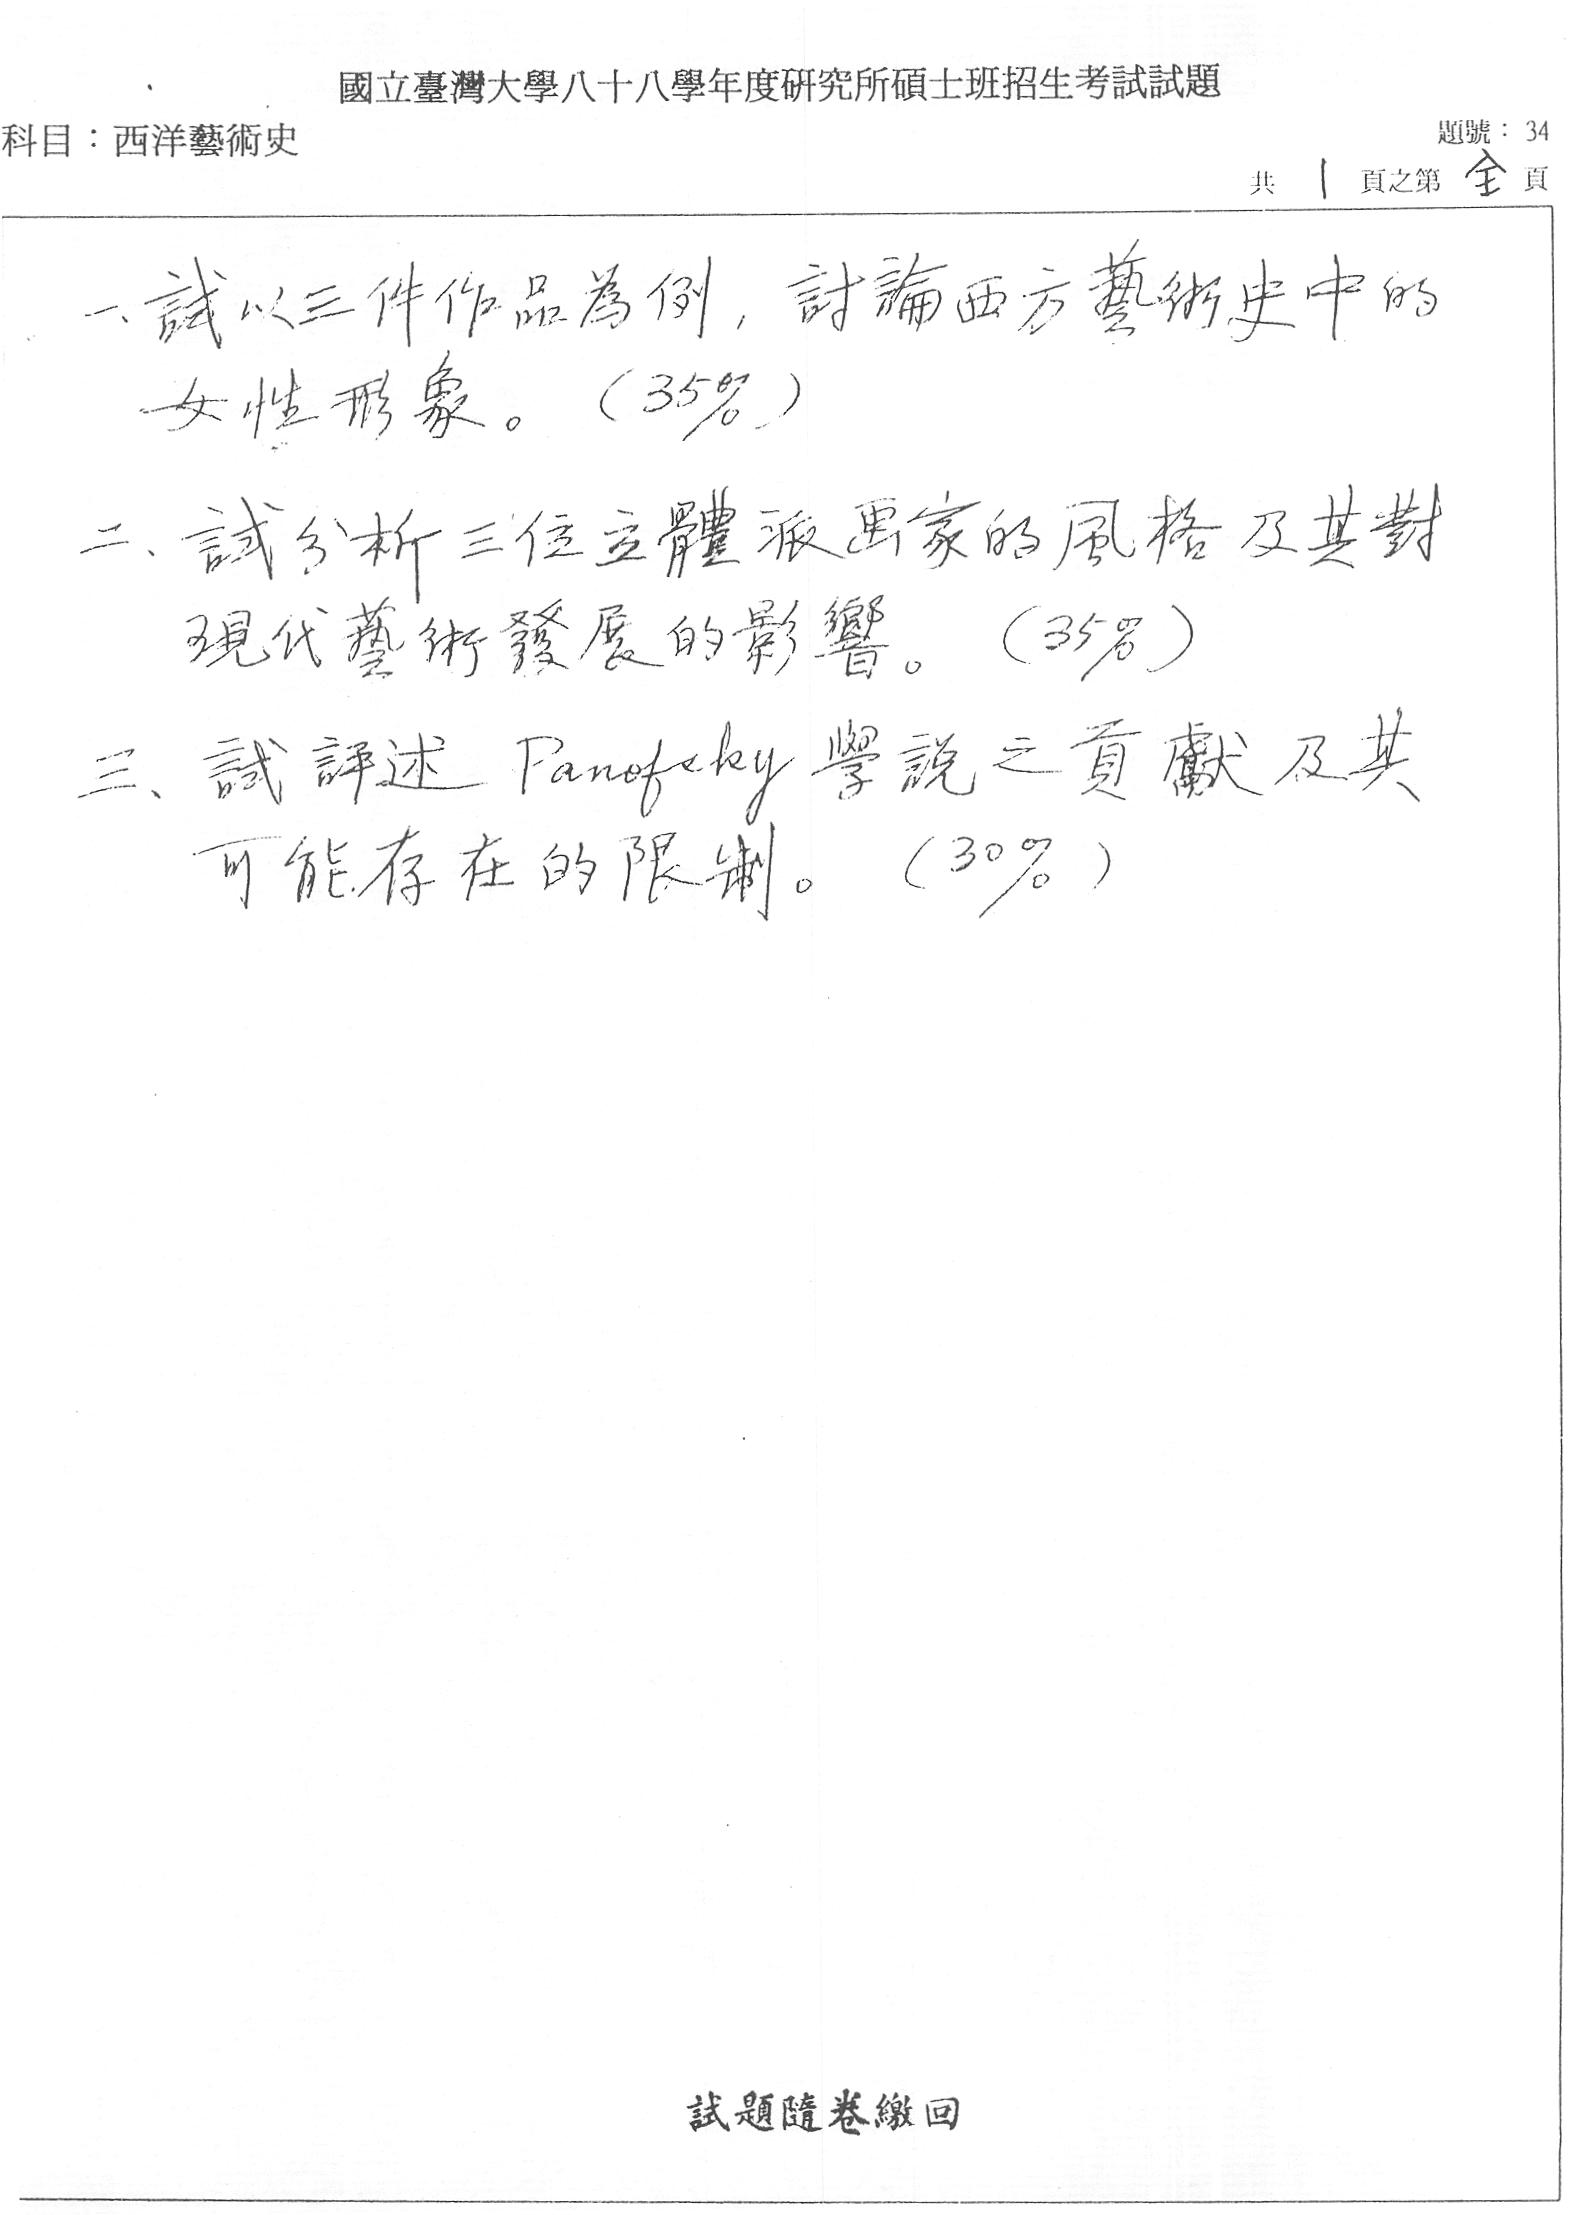 國立臺灣大學八十八學年度研究所碩士班招生考試試題
科目：西洋藝術史
題號：34
共 1 頁之第 全 頁
一、試以三件作品為例，討論西方藝術史中的
女性形象。（35%）
二、試分析三位立體派畫家的風格及其對
現代藝術發展的影響。（35%）
三、試評述 Panofsky 學說之貢獻及其
可能存在的限制。（30%）
試題隨卷繳回